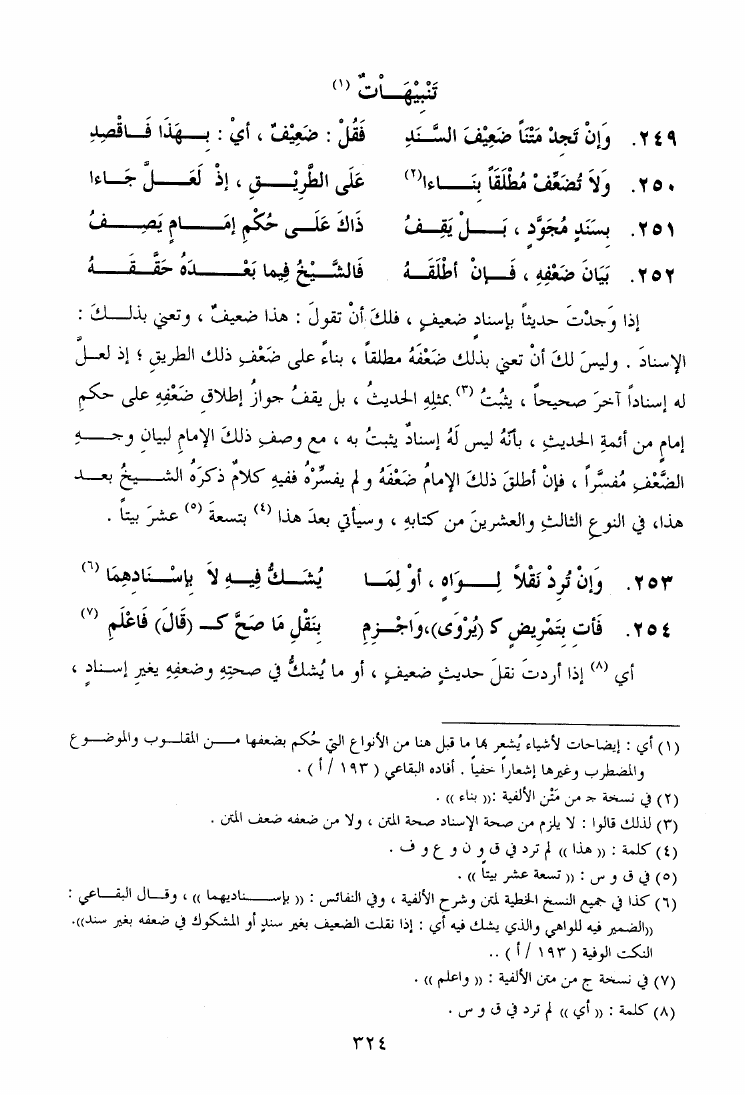 تَنْبِيْهَـــاتٌ (١)
٢٤٩. وَإِنْ تَجِدْ مَتْناً ضَعِيْفَ السَّـنَدِ فَقُلْ : ضَعِيْفٌ ، أيْ : بِـــهَذَا فَـاقْصِدِ
٢٥٠. وَلاَ تُضَعِّفْ مُطْلَقَاً بِنَـــاءا(٢) عَلَى الطَّرِيْـــقِ ، إذْ لَعَـــلَّ جَــاءا
٢٥١. بِسَنَدٍ مُجَوَّدٍ ، بَـــلْ يَقِـــفُ ذَاكَ عَلَــى حُكْمِ إمَــــامٍ يَصِــفُ
٢٥٢. بَيَانَ ضَعْفِهِ ، فَـــإنْ أطْلَقَـــهْ فَالشَّيْخُ فِيما بَعْـــدَهُ حَقَّقَـــهْ
إذا وَجَدْتَ حديثاً بإسنادٍ ضعيفٍ ، فلكَ أنْ تقولَ : هذا ضعيفٌ ، وتعني بذلــكَ :
الإسنادَ . وليسَ لكَ أنْ تعني بذلك ضَعْفَهُ مطلقاً ، بناءً على ضَعْفِ ذلك الطريقِ ؛ إذ لعــلَّ
له إسناداً آخرَ صحيحاً ، يثبُتُ (٣) بمثلِهِ الحديثُ ، بل يقفُ جوازُ إطلاقِ ضَعْفِهِ على حكمِ
إمامٍ من أئمةِ الحديثِ ، بأنَّهُ ليس لَهُ إسنادٌ يثبتُ به ، مع وصفِ ذلكَ الإمامِ لبيانِ وجــهِ
الضَّعْفِ مُفسَّراً ، فإنْ أطلقَ ذلكَ الإمامُ ضَعْفَهُ و لم يفسِّرْهُ ففيهِ كلامٌ ذكرَهُ الشــيخُ بعــد
هذا، في النوعِ الثالثِ والعشرينَ من كتابهِ ، وسيأتي بعدَ هذا (٤) بتسعةَ (٥) عشرَ بيتاً .
٢٥٣. وَإنْ تُرِدْ نَقْلاً لِـــوَاهٍ ، أوْ لِمَـــا يُشَـــكُّ فِيـــهِ لاَ بِإسْـــنَادِهِمَا (٦)
٢٥٤. فَأتِ بِتَمْرِيضٍ كـ (يُرْوَى)،وَاجْــزِمِ بِنَقْلِ مَا صَحَّ كَــ (قَالَ) فَاعْلَمِ (٧)
أي (٨) إذا أردتَ نقلَ حديثٍ ضعيفٍ ، أو ما يُشكُّ في صحتِهِ وضعفِهِ بغيرِ إسـنادٍ ،
(١) أي : إيضاحات لأشياء يُشعر بها ما قبل هنا من الأنواع التي حُكم بضعفها مـــن المقلــوب والموضــوع
والمضطرب وغيرها إشعاراً خفياً . أفاده البقاعي ( ١٩٣ / أ ) .
(٢) في نسخة جـ من مَتْن الألفية :(( بناء )) .
(٣) لذلك قالوا : لا يلزم من صحة الإسناد صحة المتن ، ولا من ضعفه ضعف المتن .
(٤) كلمة : (( هذا )) لم ترد في ق و ن و ع و ف .
(٥) في ق و س : (( تسعة عشر بيتاً )) .
(٦) كذا في جميع النسخ الخطية لمتن وشرح الألفية ، وفي النفائس : (( بإســناديهما )) ، وقــال البقــاعي :
((الضمير فيه للواهي والذي يشك فيه أي : إذا نقلت الضعيف بغير سندٍ أو المشكوك في ضعفه بغير سند)).
النكت الوفية ( ١٩٣ / أ ) ..
(٧) في نسخة ج من متن الألفية : (( واعلم )) .
(٨) كلمة : (( أي )) لم ترد في ق و س .
٣٢٤